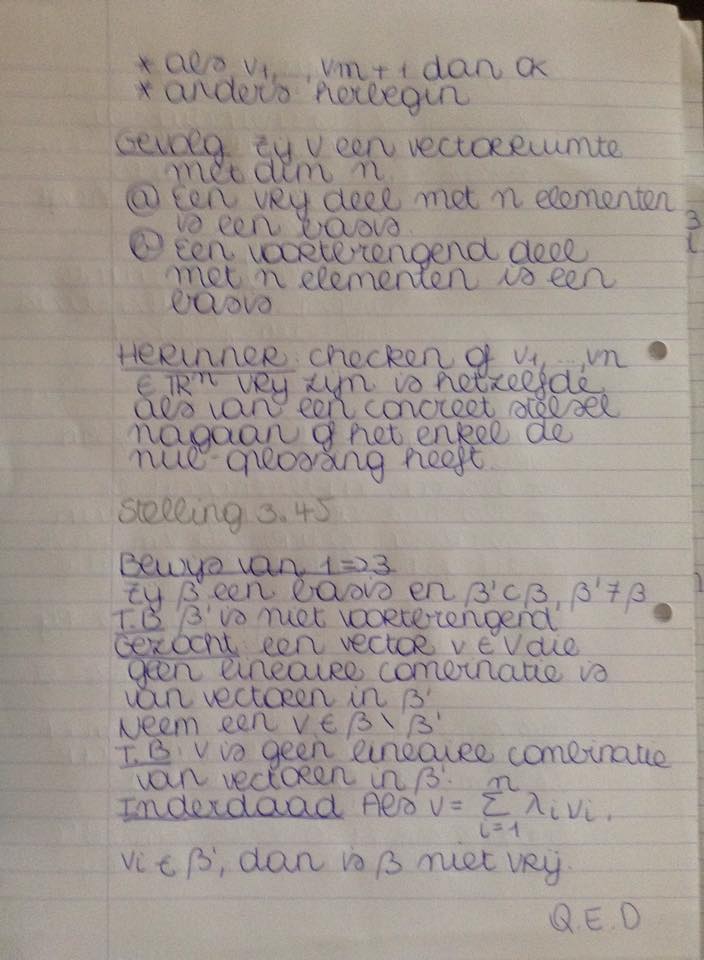 * als v1, ..., vm+1 dan ok
* anders herbegin
Gevolg zij V een vectorruimte
met dim n
ⓐ Een vrij deel met n elementen
is een basis.
ⓑ Een voortbrengend deel
met n elementen is een
basis
HERINNER: checken of v1, ..., vn
∈ ℝⁿ vrij zijn is hetzelfde
als van een concreet stelsel
nagaan of het enkel de
nul-oplossing heeft.
Stelling 3.45
Bewijs van 1=>3
Zij β een basis en β'⊂β, β'≠β
T.B β' is niet voortbrengend
Gezocht: een vector v ∈ V die
geen lineaire combinatie is
van vectoren in β'
Neem een v ∈ β \ β'
T.B: v is geen lineaire combinatie
van vectoren in β'.
Inderdaad Als v = n∑i=1 λi vi,
vi ∈ β', dan is β niet vrij.
Q.E.D